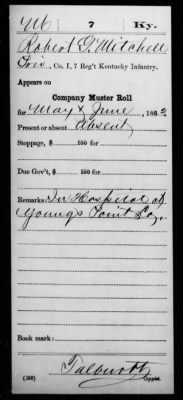 M 7 Ky.
Robert G. Mitchell
Priv., Co. I, 7 Reg't Kentucky Infantry.
Appears on
Company Muster Roll
for May & June, 1863
Present or absent Absent
Stoppage, $ 100 for
Due Gov't, $ 100 for
Remarks: In Hospital at
Young's Point La.
Book mark:
Talbott
(358) Copyist.